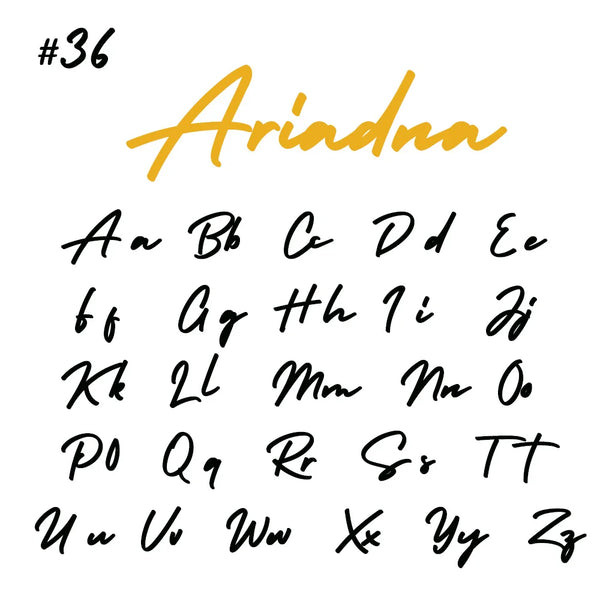 #36
Ariadna
Aa Bb Cc Dd Ee
Ff Gg Hh Ii Jj
Kk Ll Mm Nn Oo
Pp Qq Rr Ss Tt
Uu Vv Ww Xx Yy Zz